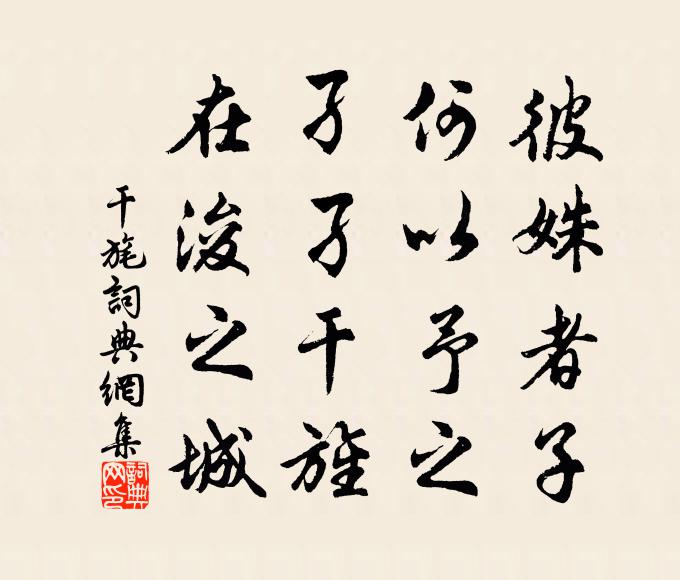 彼姝者子
何以予之
孑孑干旌
在浚之城
干旄詞典網集
詞典網印